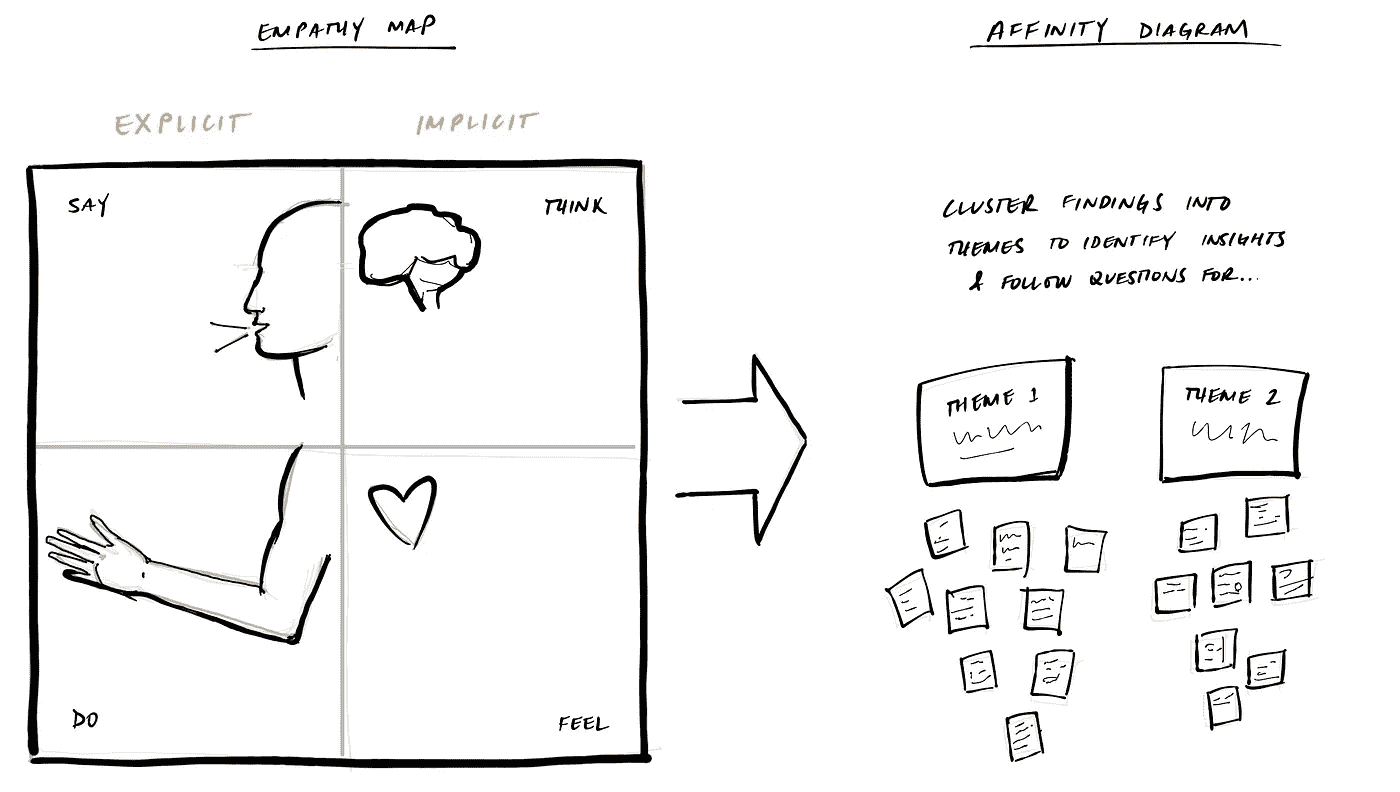 EMPATHY MAP
EXPLICIT
IMPLICIT
SAY
THINK
DO
FEEL
AFFINITY DIAGRAM
CLUSTER FINDINGS INTO
THEMES TO IDENTIFY INSIGHTS
& FOLLOW QUESTIONS FOR...
THEME 1
THEME 2